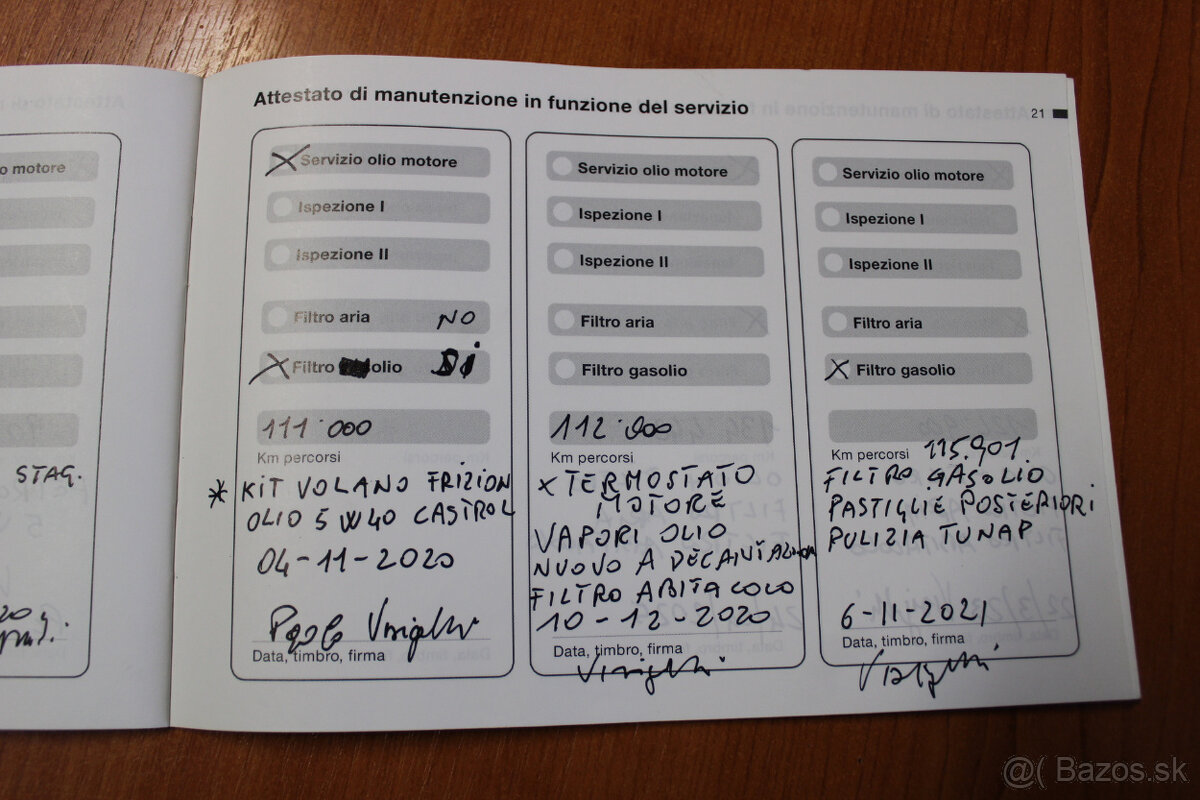 Attestato di manutenzione in funzione del servizio
21
o motore
STAG.
Servizio olio motore
Ispezione I
Ispezione II
Filtro aria NO
Filtro olio Si
111.000
Km percorsi
* KIT VOLANO FRIZION
OLIO 5W40 CASTROL
04-11-2020
Data, timbro, firma
Servizio olio motore
Ispezione I
Ispezione II
Filtro aria
Filtro gasolio
112.000
Km percorsi
x TERMOSTATO
MOTORE
VAPORI OLIO
NUOVO A
FILTRO ABITACOLO
10-12-2020
Data, timbro, firma
Servizio olio motore
Ispezione I
Ispezione II
Filtro aria
Filtro gasolio
Km percorsi 115.901.
FILTRO GASOLIO
PASTIGLIE POSTERIORI
PULIZIA TUNAP
6-11-2021
Data, timbro, firma
@( Bazos.sk